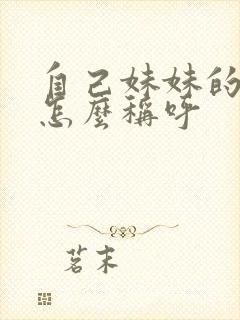 自己妹妹的
怎麼稱呼
茗末